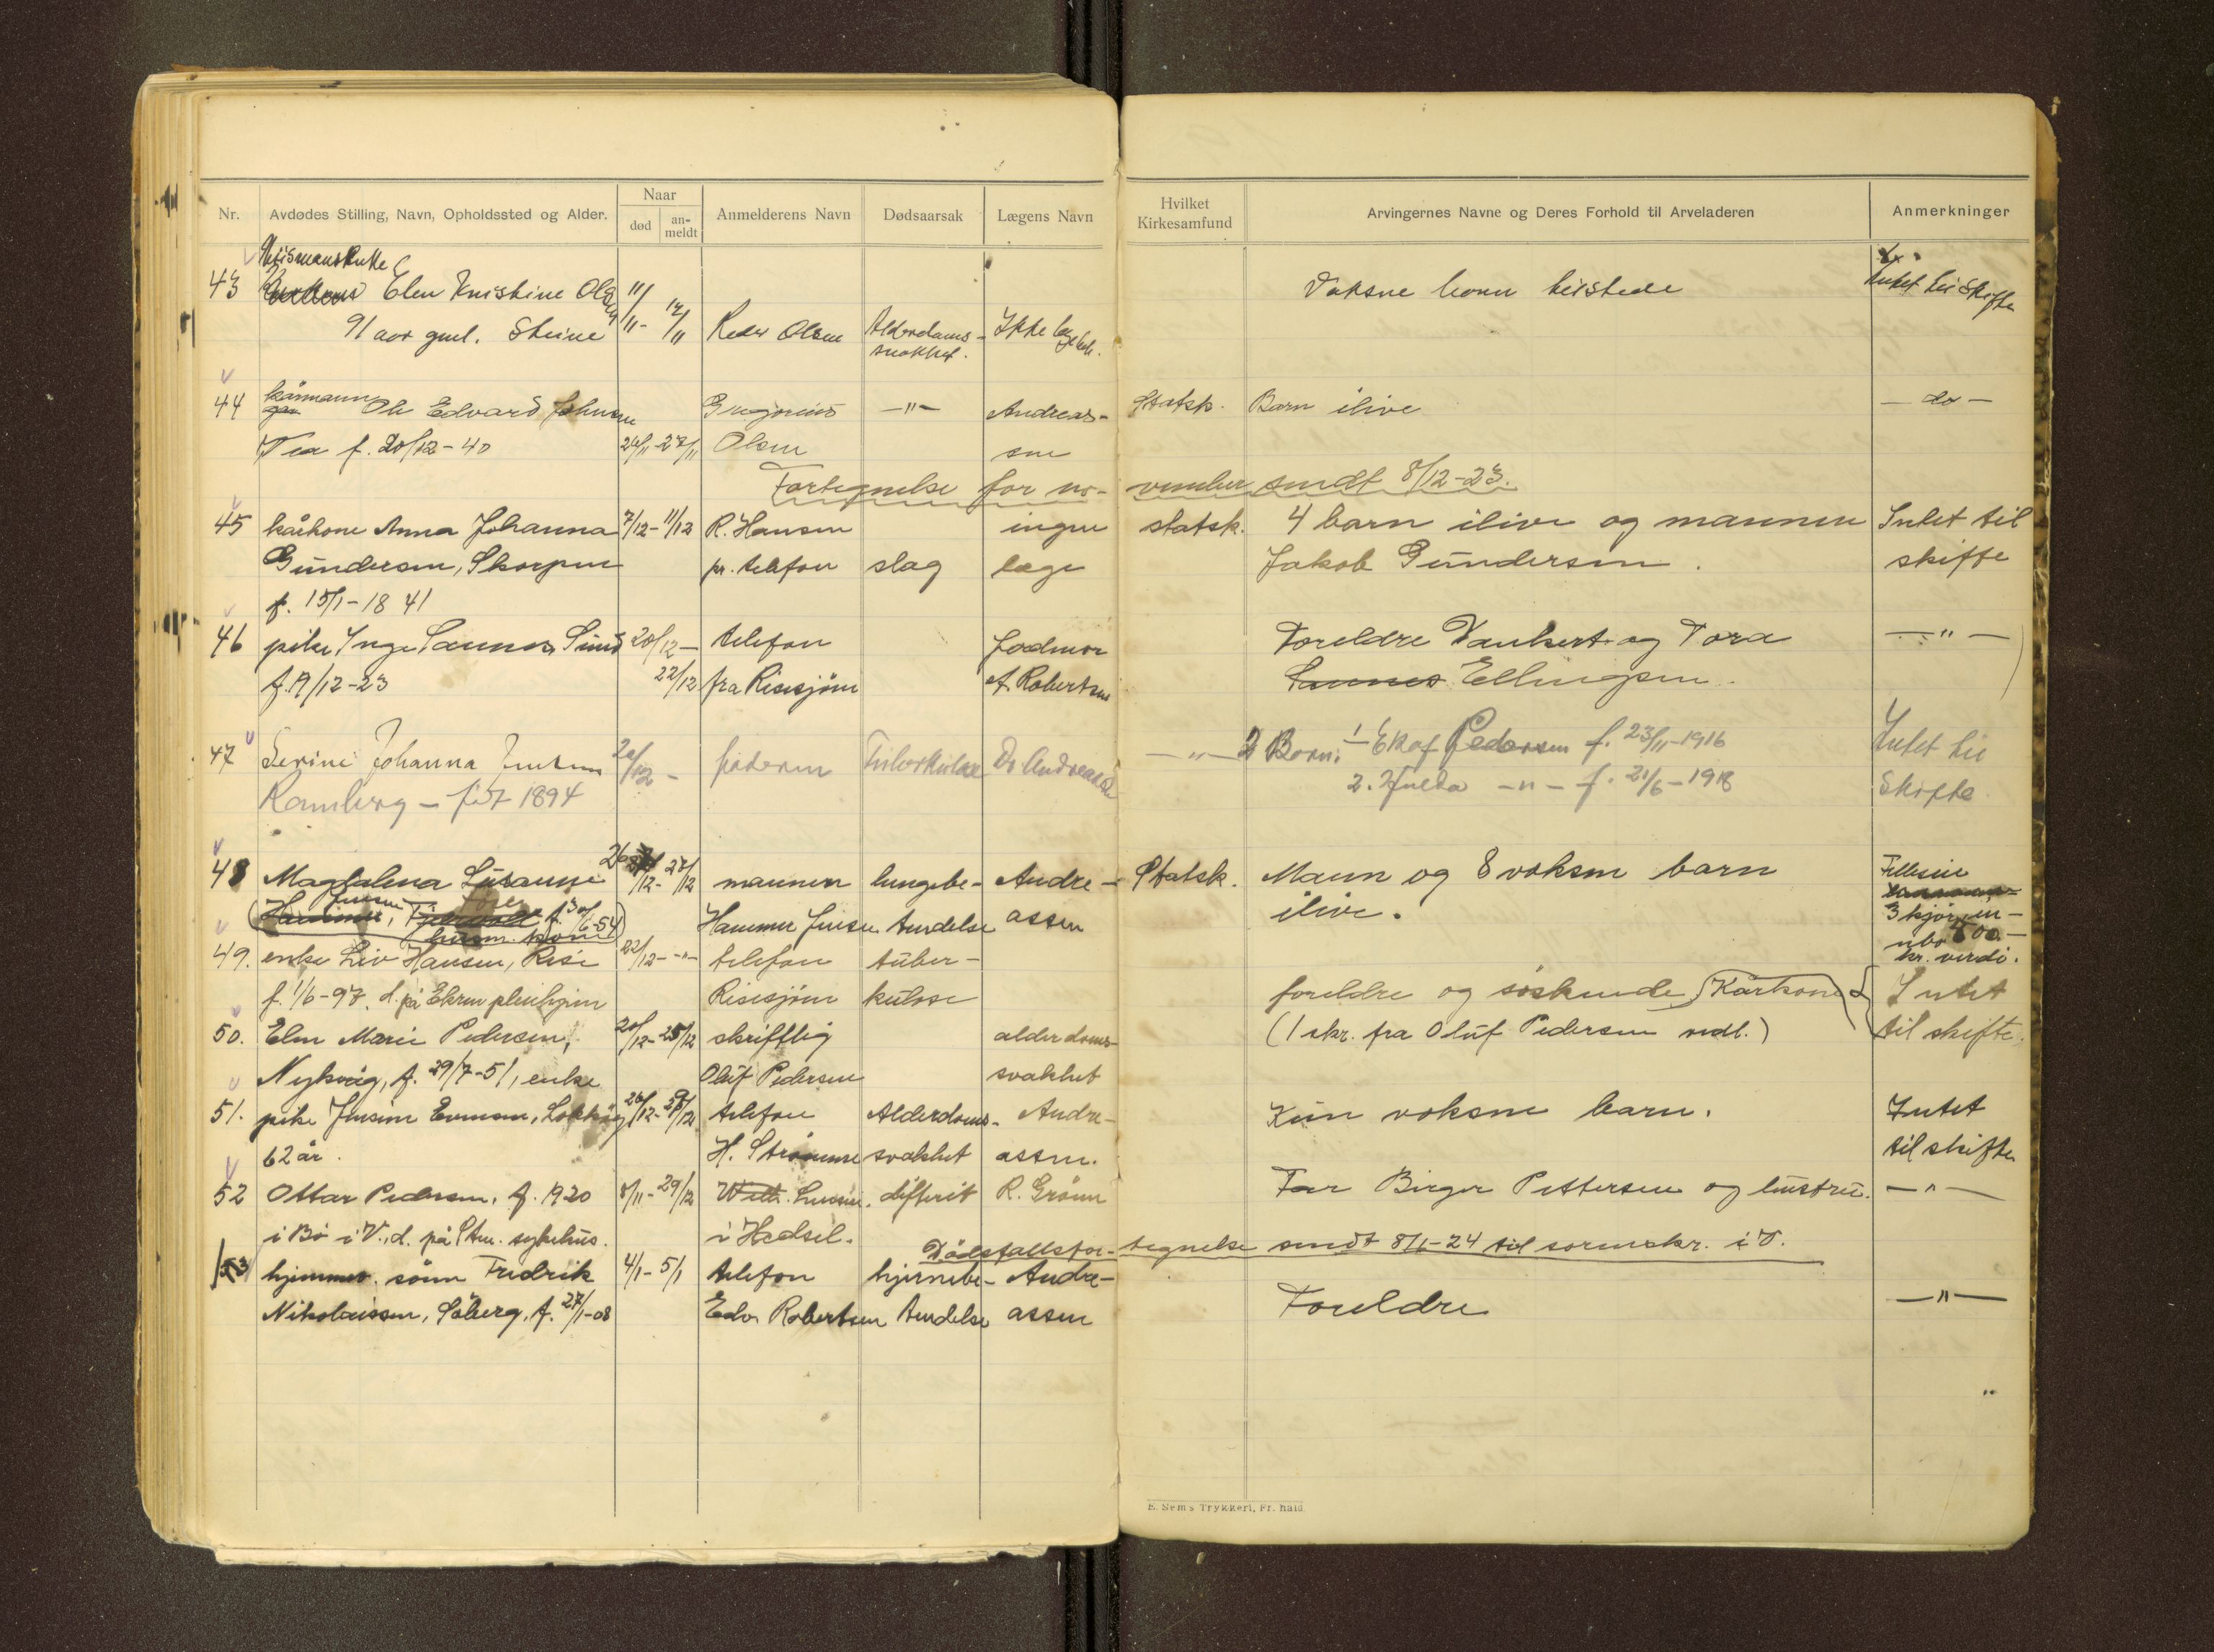 Nr.
Avdødes Stilling, Navn, Opholdssted og Alder.
Naar
død
an-
meldt
Anmelderens Navn
Dødsaarsak
Lægens Navn
Hvilket
Kirkesamfund
Arvingernes Navne og Deres Forhold til Arveladeren
Anmerkninger
43 Elen Kristine Olsen 11/11 - 12/11
Voksne barn
91 aar gml. Steine
Peder Olsen
Alderdoms-
svakhet.
Ikke
44 kårmann Ole Edvard Johnsen
Gregorius
—"—
Andreas-
Statsk.
Barn ilive
— do —
f. 20/12-40
24/11-27/11
Olsen
sen
Fortegnelse for no-vember sendt 8/12-23.
45 kårkone Anna Johanna 7/12-11/12 R. Hansen
ingen
statsk.
4 barn ilive og mannen
Intet til
Gundersen, Skorpen
pr. telefon
slag
læge
Jakob Gundersen.
skifte
f. 15/1-1841
46 pike Inga Sannes, Sund 20/12-
telefon
Jodmor
Foreldre Vankert og Tora
—"—
f. 19/12-23
22/12
fra Risesjøen
A. Robertsen
Sannes Ellingsen.
47 Serine Johanna Jensen 20/12 -
faderen
Tuberkulose
Dr Andreassen
—"—
2 Born. 1 Ekof Pedersen f. 23/11-1916
Intet til
Ramberg - født 1894
2. Hulda -"- f. 21/6-1918
Skifte
48 Magdalena Susanne 26/12-27/12
mannen
lungebe-
Andre-
Statsk.
Mann og 8 voksne barn
Jensen
f. 30/6-54
husm. kone
Hammer Jensen
tendelse
assen
ilive.
3 kjør, en-
nbo 500.-
kr. verdi.
49. enke Liv Hansen, Rise 22/12- -"-
telefon
tuber-
f. 1/6-97. d. på Ekren pleiehjem
Risesjøen
kulose
foreldre og søskende (Kårkone
Intet
50. Elen Marie Pedersen, 20/12-25/12
skriftlig
alderdoms-
(1 skr. fra Oluf Pedersen vedl.)
til skifte.
Nykvåg, f. 29/7-51, enke
Oluf Pedersen
svakhet
51. pike Jensine Evensen, 26/12-29/12
telefon
Alderdoms-
Andre-
Kun voksne barn.
Intet
62 år.
H. Strømme
svakhet
assen.
til skifte
52 Ottar Pedersen, f. 1920 8/11-29/12
With. Jensen.
difterit
R. Grønn
Far Birger Pettersen og hustru.
—"—
i Bø i V., d. på Stm. sykehus.
i Hadsel.
Dødsfallsfor-tegnelse sendt 8/1-24 til sorenskr. i V.
53 hjemmev. sønn Fredrik 4/1-5/1
telefon
hjernebe-
Andre-
Nikolaissen, Søberg, f. 27/1-08
Edv. Robertsen
tendelse
assen
Foreldre
—"—
E. Sem's Trykkeri, Fr. hald